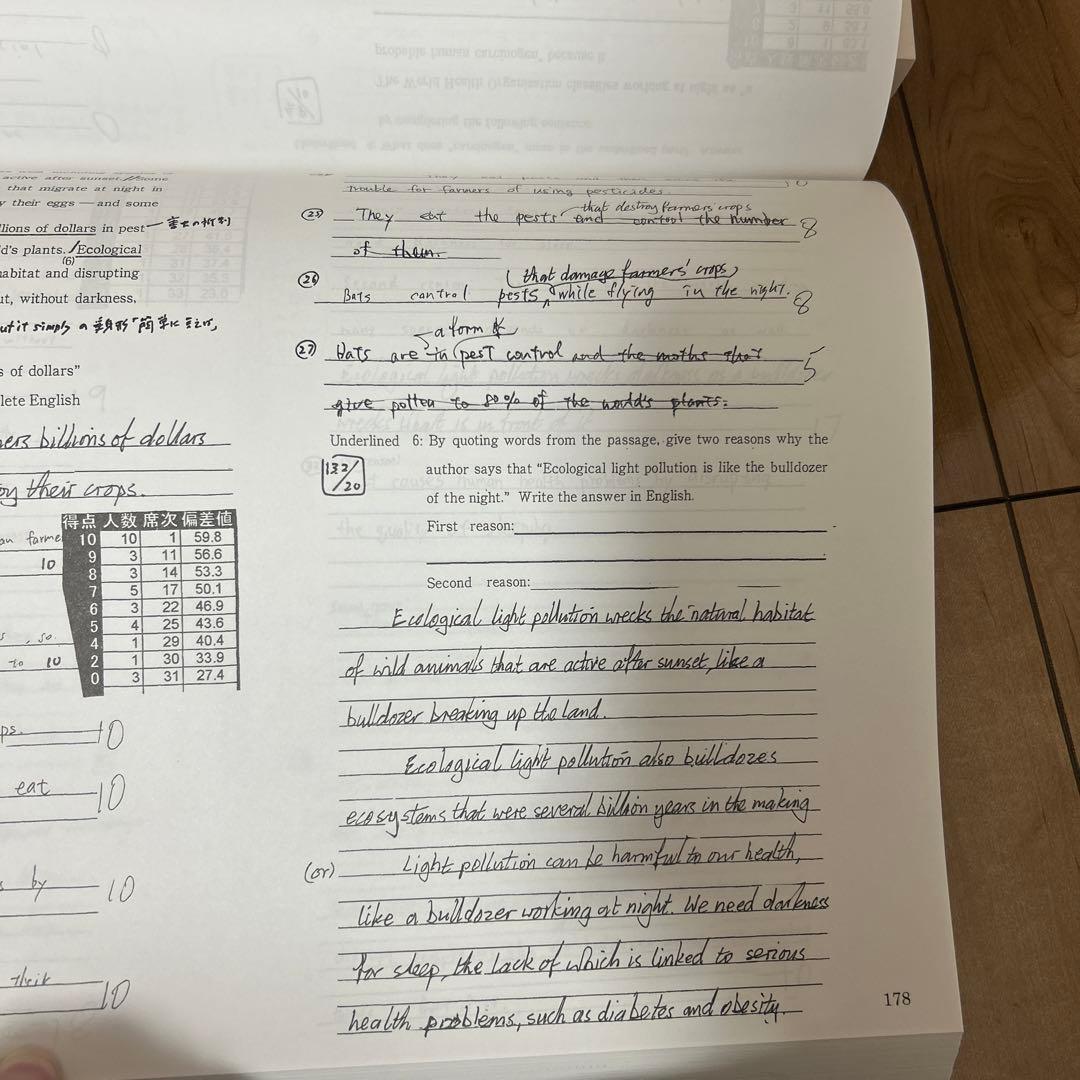 probable human carcinogen, because it
The World Health Organization classifies working at night as "a
by completing the following sentence
active after sunset. Some
that migrate at night in
y their eggs — and some
llions of dollars in pest
d's plants. Ecological
(6)
abitat and disrupting
ut, without darkness,
s of dollars"
lete English
ers billions of dollars
oy their crops.
an farme
10
得点 人数 席次 偏差値
10 10 1 59.8
9 3 11 56.6
8 3 14 53.3
7 5 17 50.1
6 3 22 46.9
5 4 25 43.6
4 1 29 40.4
2 1 30 33.9
0 3 31 27.4
s, so
to 10
ps. 10
eat 10
s by 10
their 10
trouble for farmers of using pesticides. 10
that destroy farmers' crops
(25) They eat the pests and control the number 8
of them.
(that damage farmers' crops)
(26) Bats control pests while flying in the night. 8
a form of
(27) Bats are in pest control and the moths that 5
give pollen to 80% of the world's plants.
Underlined 6: By quoting words from the passage, give two reasons why the
132/20
author says that "Ecological light pollution is like the bulldozer
of the night." Write the answer in English.
First reason:
Second reason:
Ecological light pollution wrecks the natural habitat
of wild animals that are active after sunset, like a
bulldozer breaking up the land.
Ecological light pollution also bulldozes
ecosystems that were several billion years in the making
(or) Light pollution can be harmful to our health,
like a bulldozer working at night. We need darkness
for sleep, the lack of which is linked to serious
health problems, such as diabetes and obesity.
178